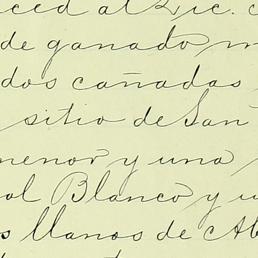 ced al Lic.
de ganado m
dos cañadas
sitio de San
menor y una
ol Blanco y u
s llanos de Ab